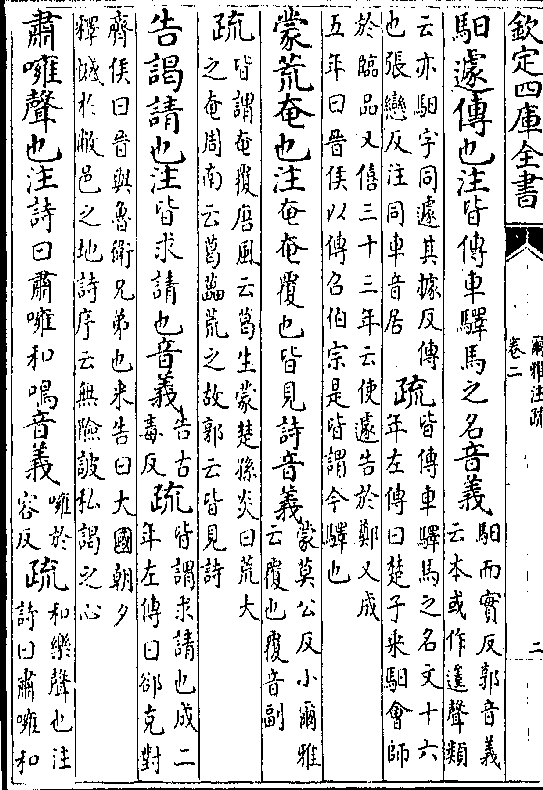 欽定四庫全書
爾雅注疏
卷二
二
馹遽傳也注皆傳車驛馬之名音義
馹而實反郭音義
云本或作遳聲類
云亦馹字同遽其據反傳
也張戀反注同車音居
疏
皆傳車驛馬之名文十六
年左傳曰楚子乘馹會師
於臨品又僖三十三年云使遽告於鄭又成
五年曰晉侯以傳召伯宗是皆謂今驛也
蒙荒奄也注奄奄覆也皆見詩音義
蒙莫公反小爾雅
云覆也覆音副
疏
皆謂奄覆唐風云葛生蒙楚孫炎曰荒大
之奄周南云葛藟荒之故郭云皆見詩
告謁請也注皆求請也音義
告古
毒反
疏
皆謂求請也成二
年左傳曰郤克對
齊侯曰晉與魯衛兄弟也来告曰大國朝夕
釋憾於敝邑之地詩序云無險詖私謁之心
肅噰聲也注詩曰肅噰和鳴音義
噰於
容反
疏
和樂聲也注
詩曰肅噰和